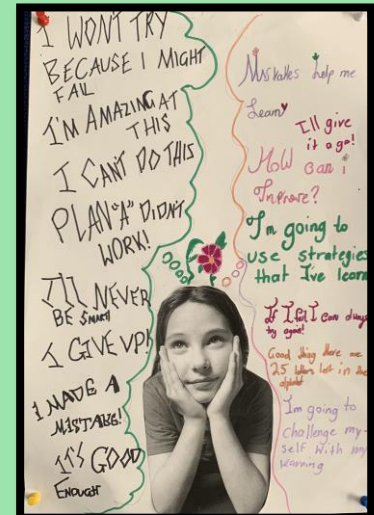 I WONT TRY
BECAUSE I MIGHT
FAIL
I'M AMAZING AT
THIS
I CAN'T DO THIS
PLAN "A" DIDN'T
WORK!
I'LL NEVER
BE SMART!
I GIVE UP!
I MADE A
MISTAKE!
IT'S GOOD
ENOUGH
Mistakes help me
Learn
I'll give
it a go!
How can i
Improve?
I'm going to
use strategies
that I've learn
If I fail I can always
try again!
Good thing there are
25 letters left in the
alphabet
I'm going to
challenge my-
self with my
learning